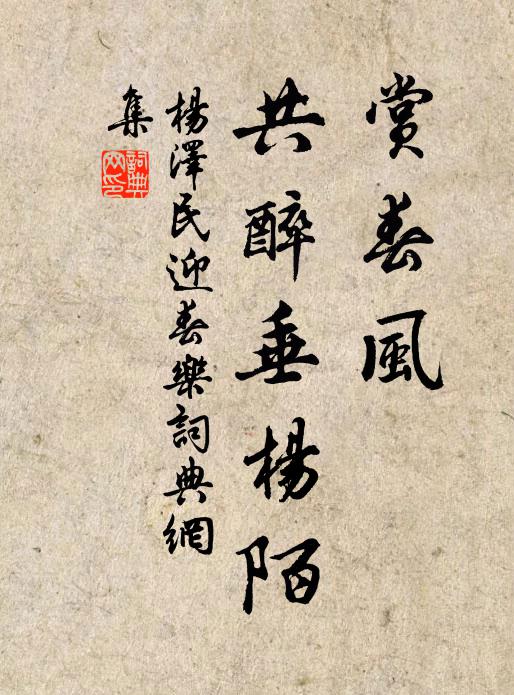 賞春風
共醉垂楊陌
楊澤民迎春樂詞典網
集
詞典網印